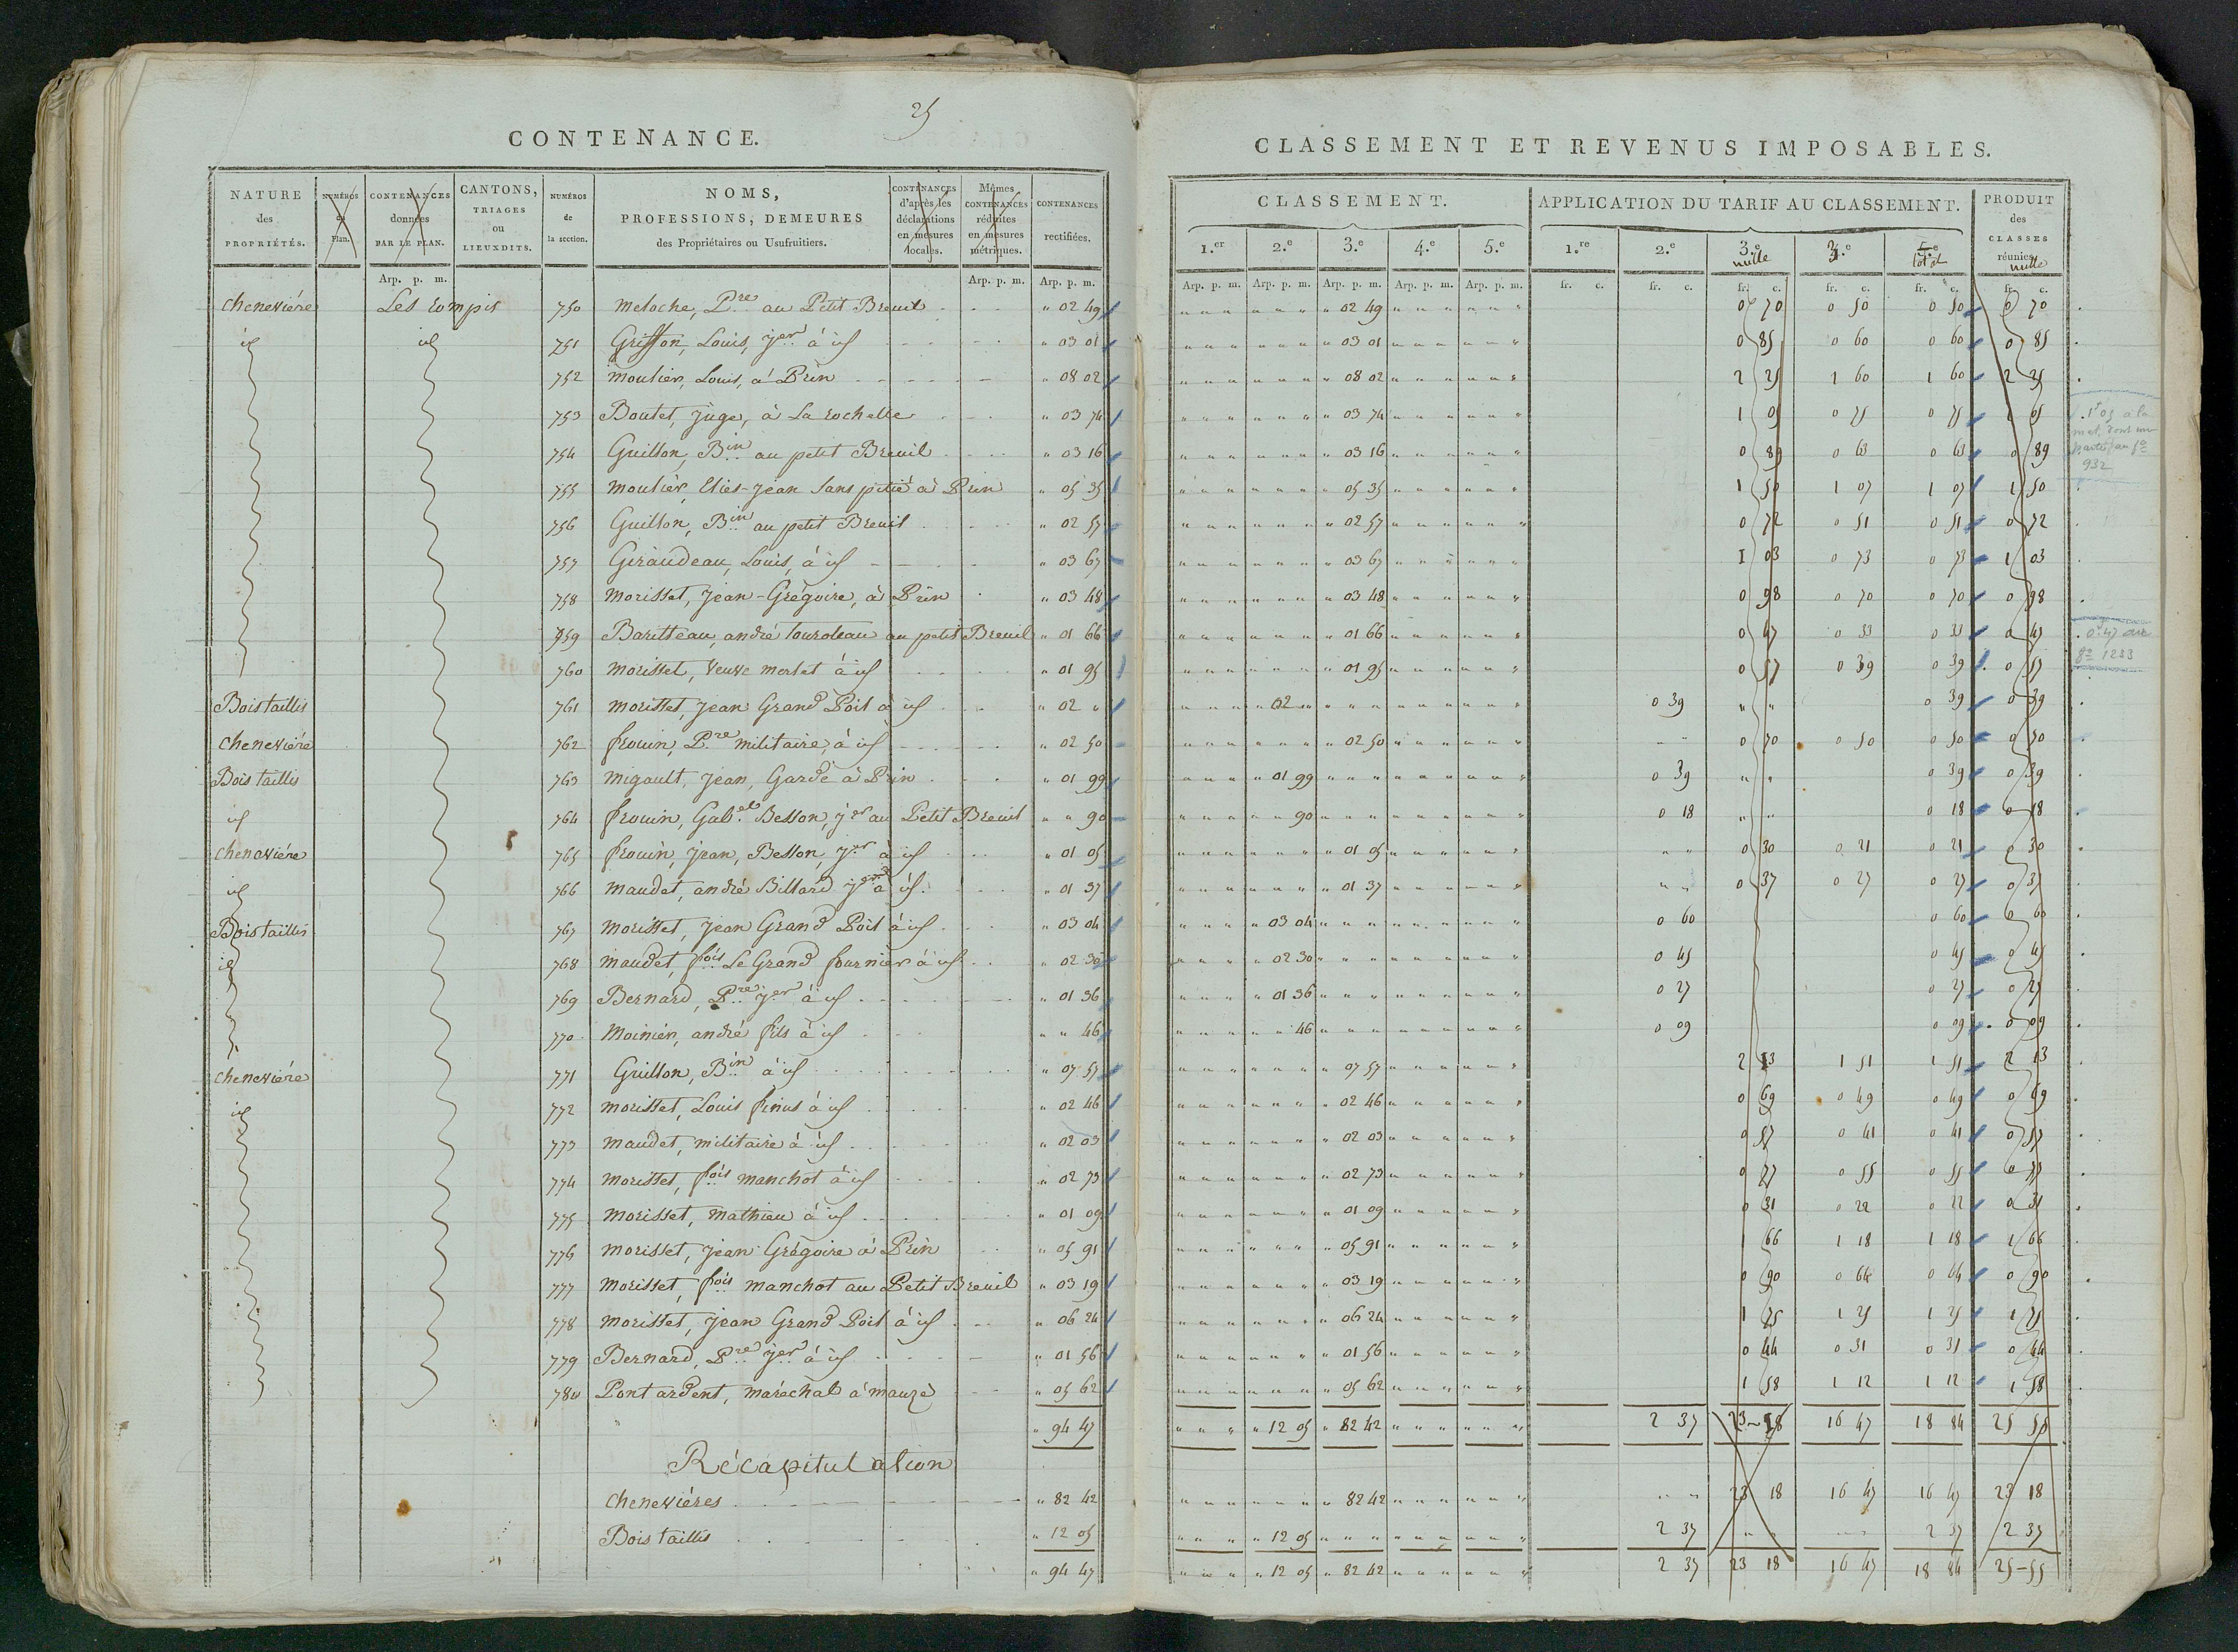 25
CONTENANCE.
NATURE des PROPRIÉTÉS.
NUMÉROS du Plan.
CONTENANCES données PAR LE PLAN.
CANTONS, TRIAGES ou LIEUXDITS.
NUMÉROS de la section.
NOMS, PROFESSIONS, DEMEURES des Propriétaires ou Usufruitiers.
CONTENANCES d'après les déclarations en mesures locales.
Mêmes CONTENANCES réduites en mesures métriques.
CONTENANCES rectifiées.
Arp. p. m. Arp. p. m. Arp. p. m.
Cheneviére Les Rompis 750 Meloche, Pre au Petit Breuil " 02 49
id id 751 Griffon, Louis, Jer à id " 03 01
752 Moulier, Louis, à Prin " 08 02
753 Boutet, juge, à La Rochelle " 03 74
754 Guillon, Bin au petit Breuil " 03 16
755 Moulier, Elies-Jean Sans pitié à Prin " 05 35
756 Guillon, Bin au petit Breuil " 02 57
757 Giraudeau, Louis, à id " 03 67
758 Morisset, Jean-Grégoire, à Prin " 03 48
759 Baritteau, andré touroleau au petit Breuil " 01 66
760 Morisset, veuve Merlet à id " 01 95
Bois taillis 761 Morisset, Jean Grand Poil à id " 02 "
Cheneviére 762 frouin, Pre militaire, à id " 02 50
Bois taillis 763 Migault, Jean, Garde à Prin " 01 99
id 764 frouin, Gab.el Besson, Jer au Petit Breuil " " 90
Cheneviére 765 frouin, Jean, Besson, Jer à id " 01 05
id 766 Maudet, andré Billard Jer à id. " 01 37
Bois taillis 767 Morisset, Jean Grand Poil à id " 03 04
id 768 Maudet, fois Le Grand fournier à id " 02 30
769 Bernard, Pre Jer à id " 01 36
770 Moinier, andré fils à id " " 46
Cheneviére 771 Guillon, Bin à id " 07 57
id 772 Morisset, Louis finus à id " 02 46
773 Maudet, militaire à id " 02 03
774 Morisset, fois manchot à id " 02 73
775 Morisset, Mathieu à id " 01 09
776 Morisset, Jean Grégoire à Prin " 05 91
777 Morisset, fois manchot au Petit Breuil " 03 19
778 Morisset, Jean Grand Poil à id " 06 24
779 Bernard, Pre Jer à id " 01 56
780 Pont ardent, maréchal à Mauzé " 05 62
" 94 47
Récapitulation
Cheneviéres " 82 42
Bois taillis " 12 05
" 94 47
CLASSEMENT ET REVENUS IMPOSABLES.
CLASSEMENT. APPLICATION DU TARIF AU CLASSEMENT. PRODUIT des CLASSES réunies. nulle
1.er 2.e 3.e 4.e 5.e 1.re 2.e 3.e nulle 3.e total
Arp. p. m. Arp. p. m. Arp. p. m. Arp. p. m. Arp. p. m. fr. c. fr. c. fr. c. fr. c. fr. c. fr. c.
" 02 49 0 70 0 50 0 50 0 70
" 03 01 0 85 0 60 0 60 0 85
" 08 02 2 25 1 60 1 60 2 25
" 03 74 1 05 0 75 0 75 1 05
" 03 16 0 89 0 63 0 63 0 89
" 05 35 1 50 1 07 1 07 1 50
" 02 57 0 72 0 51 0 51 0 72
" 03 67 1 03 0 73 0 73 1 03
" 03 48 0 98 0 70 0 70 0 98
" 01 66 0 47 0 33 0 33 0 47
" 01 95 0 57 0 39 0 39 0 57
" 02 " 0 39 " " 0 39 0 39
" 02 50 0 70 0 50 0 50 0 70
" 01 99 0 39 " " 0 39 0 39
" " 90 0 18 " " 0 18 0 18
" 01 05 0 30 0 21 0 21 0 30
" 01 37 0 37 0 27 0 27 0 37
" 03 04 0 60 0 60 0 60
" 02 30 0 45 0 45 0 45
" 01 36 0 27 0 27 0 27
" " 46 0 09 0 09 0 09
" 07 57 2 13 1 51 1 51 2 13
" 02 46 0 69 0 49 0 49 0 69
" 02 03 0 57 0 41 0 41 0 57
" 02 73 0 77 0 55 0 55 0 77
" 01 09 0 31 0 22 0 22 0 31
" 05 91 1 66 1 18 1 18 1 66
" 03 19 0 90 0 64 0 64 0 90
" 06 24 1 75 1 25 1 25 1 75
" 01 56 0 44 0 31 0 31 0 44
" 05 62 1 58 1 12 1 12 1 58
" 12 05 " 82 42 2 37 23 18 16 47 18 84 25 55
" 82 42 " " 23 18 16 47 16 47 23 18
" 12 05 2 37 " " 2 37 2 37
" 12 05 " 82 42 2 37 23 18 16 47 18 84 25-55
1f 05 a la
met. dont un
partie au fo
932
0f 47 au
fo 1233